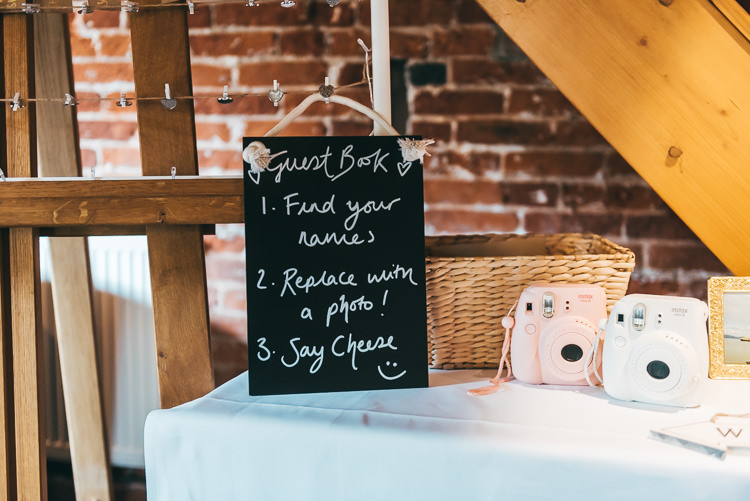 Guest Book
1. Find your
names
2. Replace with
a photo!
3. Say Cheese
instax
instax
W